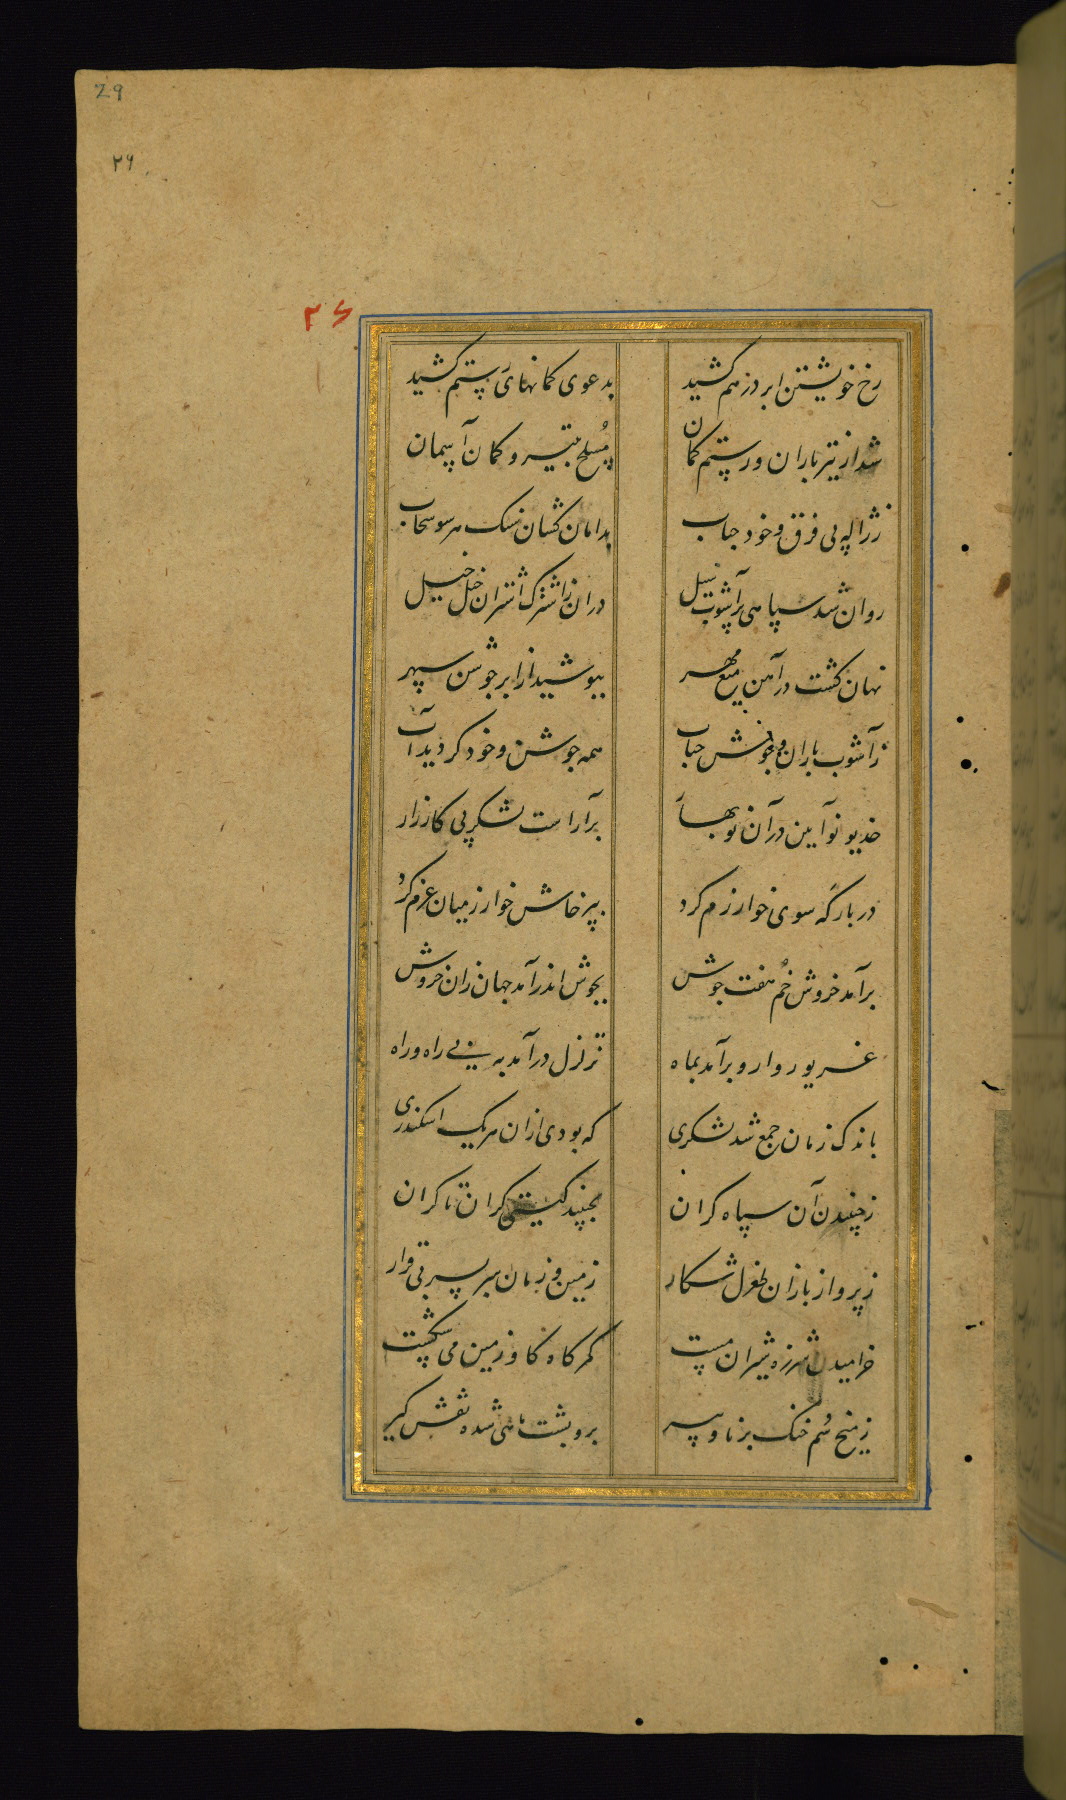 29
۲۹
۲۶
رخ خویشتن ابر درهم کشید بدعوی کمانهای رستم کشید
شد از تیرباران و رستم کمان مسلح بتیر و کمان آسمان
ز ژاله پی فرق و خود حباب بدامان کشان سنک هر سو سحاب
روان شد سپاهی پرآشوب سیل دران اشتران خیل خیل
نهان کشت در آهن میغ مهر بپوشید از ابر جوشن سپهر
ز آشوب باران و جوش حباب همه جوشن و خود کردید آب
خدیو نوآیین در آن نوبهار برآراست لشکر پی کارزار
در بارکه سوی خوارزم کرد بپرخاش خوارزمیان عزم کرد
برآمد خروش خم هفت جوش بجوش اندر آمد جهان زان خروش
غریو روارو برآمد بماه تزلزل درآمد به بی راه و راه
باندک زمان جمع شد لشکری که بودی ازان هر یک اسکندری
ز جنبیدن آن سپاه کران بجنبید کیتی کران تا کران
ز پرواز بازان طغرل شکار زمین و زمان سربسر بی قرار
خرامیدن شرزه شیران مست کمرکاه کاو زمین می شکست
ز میخ سم خنک برنا و پیر برو پشت ماهی شده نقش کیر